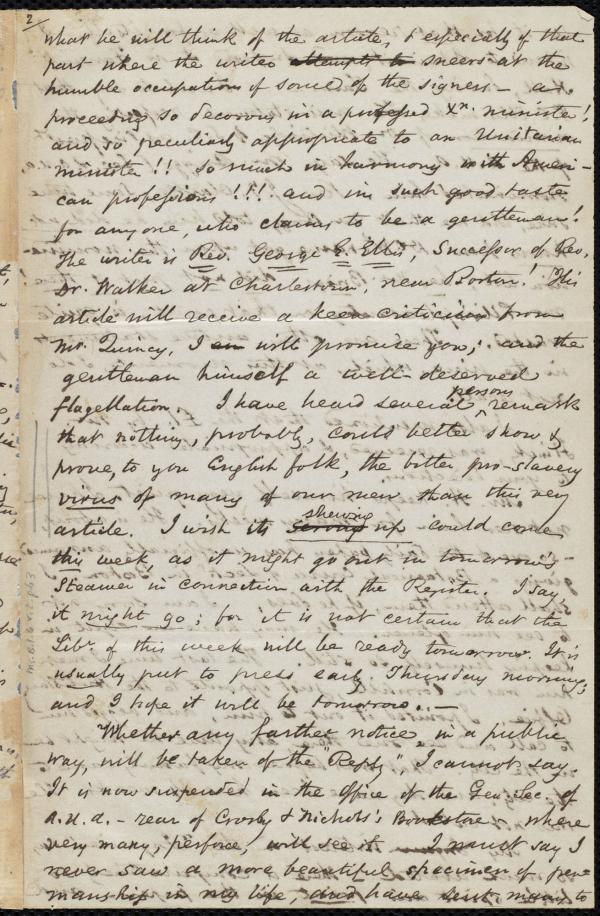 2/
what he will think of the article, & especially of that
part where the writer attempts to sneers at the
humble occupations of some of the signers — a
proceeding so decorous in a professed Xn. minister!
and so peculiarly appropriate to an Unitarian
minister!! so much in harmony with Ameri-
can professions!!! and in such good taste
for any one, who claims to be a gentleman!
The writer is Rev. George E. Ellis, Successor of Rev.
Dr. Walker at Charlestown, near Boston! This
article will receive a keen criticism from
Mr. Quincy, I will promise you; and the
gentleman himself a well-deserved
flagellation. I have heard several persons remark
that nothing, probably, could better show, &
prove, to you English folk, the bitter pro-slavery
virus of many of our men than this very
article. I wish its shewing up could come
this week, as it might go out in tomorrow's
Steamer in connection with the Register. I say,
it might go; for it is not certain that the
Libr. of this week will be ready tomorrow. It is
usually put to press early Thursday morning;
and I hope it will be tomorrow. —
Whether any farther notice, in a public
way, will be taken of the "Reply", I cannot say.
It is now suspended in the Office of the Gen. Sec. of
A.U.A. — rear of Crosby & Nichols's Bookstore — where
very many, perforce, will see it. I must say I
never saw a more beautiful specimen of pen-
manship in my life, and have sent many to